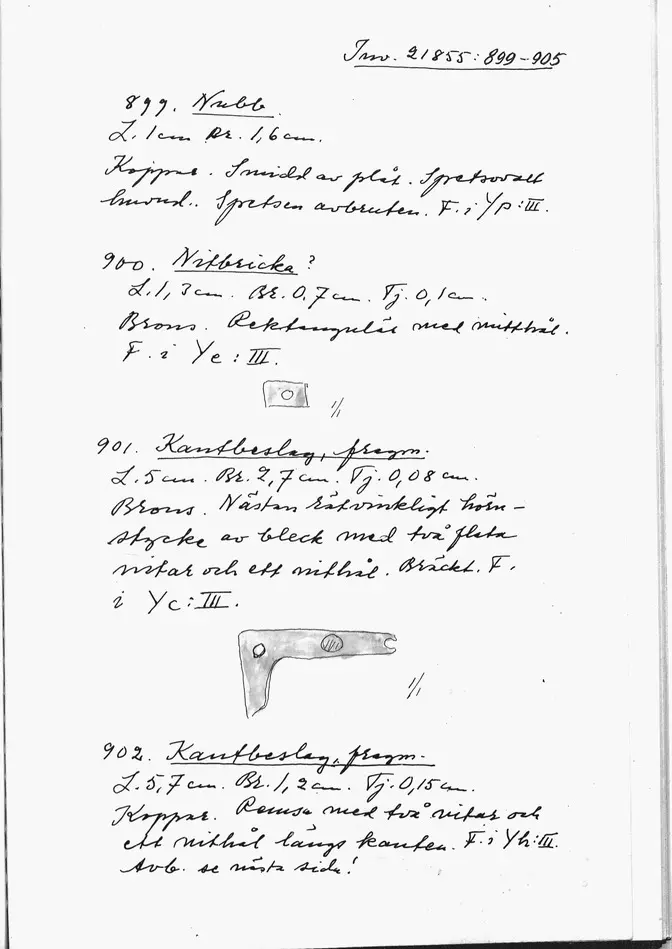 Inv. 21855:899-905
899. Nubb.
L. 1 cm Br. 1,6 cm.
Koppar. Smidd av plåt. Spetsovalt
huvud.. Spetsen avbruten. F. i Yp:III.
900. Nitbricka?
L. 1,3 cm. Br. 0,7 cm. Tj. 0,1 cm.
Brons. Rektangulär med mitthål.
F. i Ye:III.
1/1
901. Kantbeslag, fragm.
L. 5 cm. Br. 2,7 cm. Tj. 0,08 cm.
Brons. Nästan rätvinkligt hörn-
stycke av bleck med två flata
nitar och ett nithål. Bräckt. F.
i Yc:III.
1/1
902. Kantbeslag, fragm.
L. 5,7 cm. Br. 1,2 cm. Tj. 0,15 cm.
Koppar. Remsa med två nitar och
ett nithål längs kanten. F. i Yh:III.
Avb. se nästa sida!